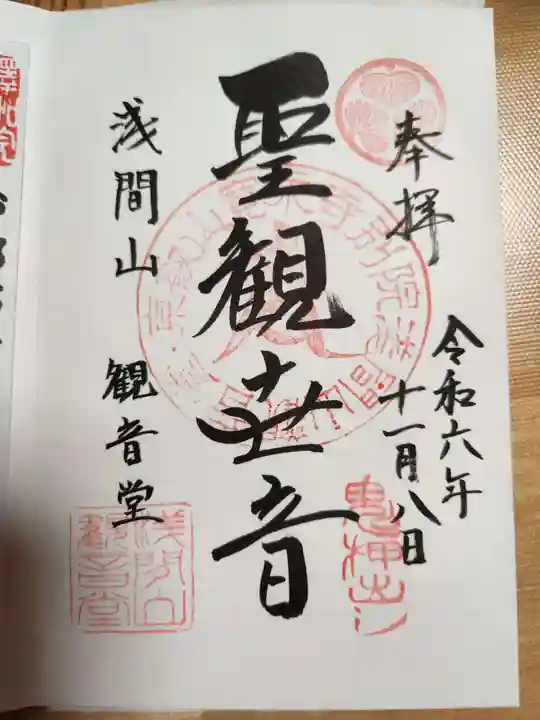 奉拝
令和六年
十一月八日
聖観世音
浅間山
観音堂
鬼押出シ
浅間山
観音堂